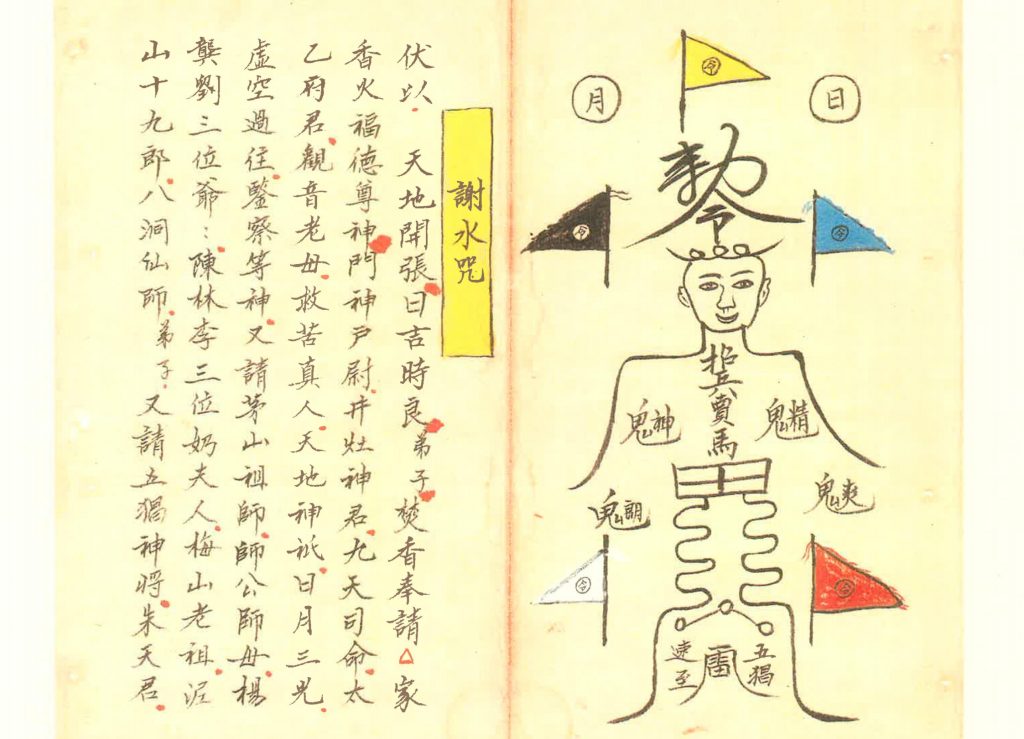 令
日
月
敕令
令
令
招兵賣馬
魁精
魁神
令
令
五猖
雷
速至
謝水咒
伏以 天地開張日吉時良弟子焚香奉請△家
香火福德尊神門神戶尉井灶神君九天司命太
乙府君觀音老母救苦真人天地神祇日月三光
虛空過往鑒察等神又請茅山祖師師公師母楊
龔劉三位爺：陳林李三位奶夫人梅山老祖泥
山十九郎八洞仙師弟子又請五猖神將朱天君